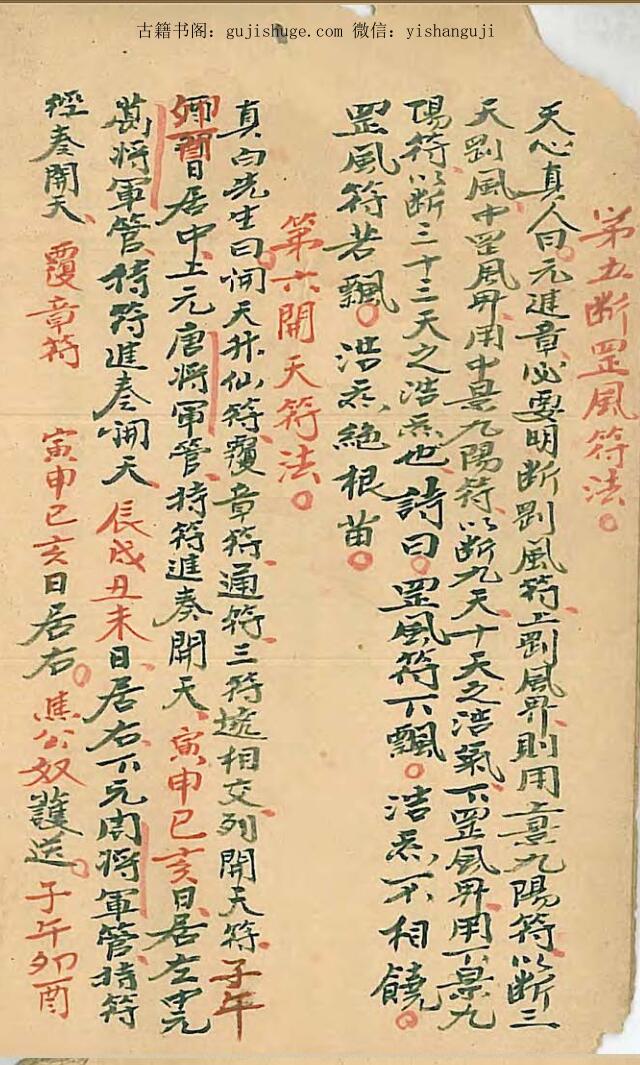 古籍书阁：gujishuge.com 微信：yishanguji
第五断罡风符法。
天心真人曰元進章必要明断剛風符上剛風界則用上景九陽符以断三
天剛風中罡風界用中景九陽符以断九天十天之浩氣下罡風界用下景九
陽符以断三十三天之浩炁也詩曰。罡風符下飄。浩炁不相饒。
罡風符若飄。浩炁絕根苗。
第六開天符法。
真白先生曰開天升仙符覆章符通符三符 相交列開天符子午
卯酉日居中上元唐將軍管持符進奏開天寅申巳亥日居左中元
葛將軍管持符進奏開天辰戌丑未日居右下元周將軍管持符
經奏開天 覆章符 寅申巳亥日居右。焦公奴護送。子午卯酉